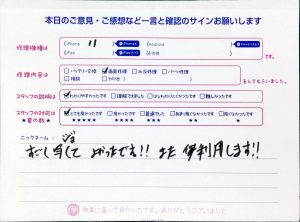 本日のご意見・ご感想など一言と確認のサインお願いします
修理機種は
iPhone 11
Android
iPad
その他
修理内容は
バッテリー交換 画面修理 水没修理 パーツ修理
相談 その他
をしてもらいました。
スタッフの説明は
わかりやすかったです 理解できました 少しわかりにくかったです 難しかったです
スタッフの対応は
★星の数★
とても良かったです 良かったです 普通でした あまり良くなかったです 良くなかったです
★★★★★ ★★★★ ★★★ ★★ ★
ニックネーム：
です!! また 利用します!!
無事に直って良かったです。ありがとうございました